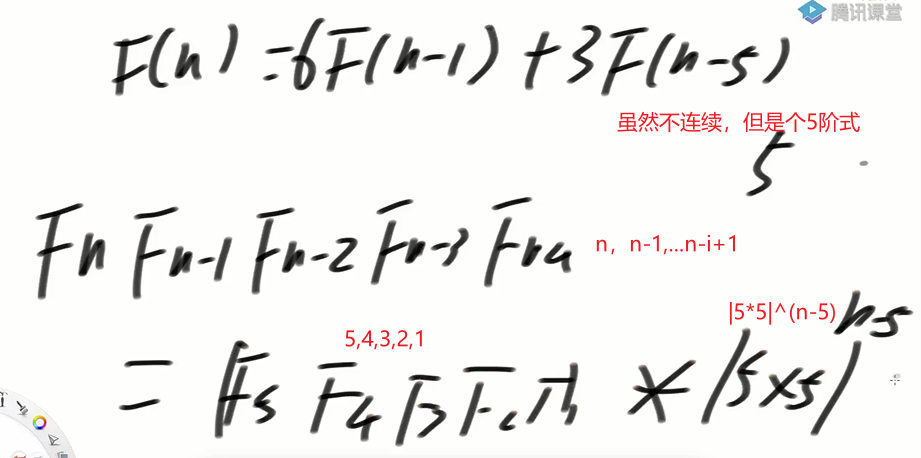 腾讯课堂
F(n) = 6F(n-1) + 3F(n-5)
虽然不连续，但是个5阶式
5
Fn Fn-1 Fn-2 Fn-3 Fn4 n，n-1,...n-i+1
|5*5|^(n-5)
5,4,3,2,1
= |F5 F4 F3 F2 F1| * |5×5|^n-5